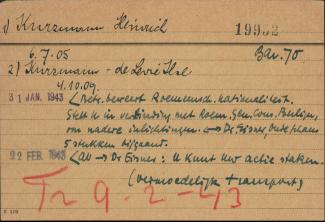 1) Kurzmann Heinrich 19952
6.7.05 Bar. 70
2) Kurzmann - de Levie Ilse
4.10.09
31 JAN. 1943 Betr. beweert Roemeensch. nationaliteit.
Stelt U in verbinding met Roem. Gen. Cons. Berlijn,
om nadere inlichtingen. Dr Eisner
5 stukken bijgaand.
22 FEB. 1943 Dr Eisner: U kunt Uw actie staken.
(vermoedelijk transport)
Tr 9-2-43